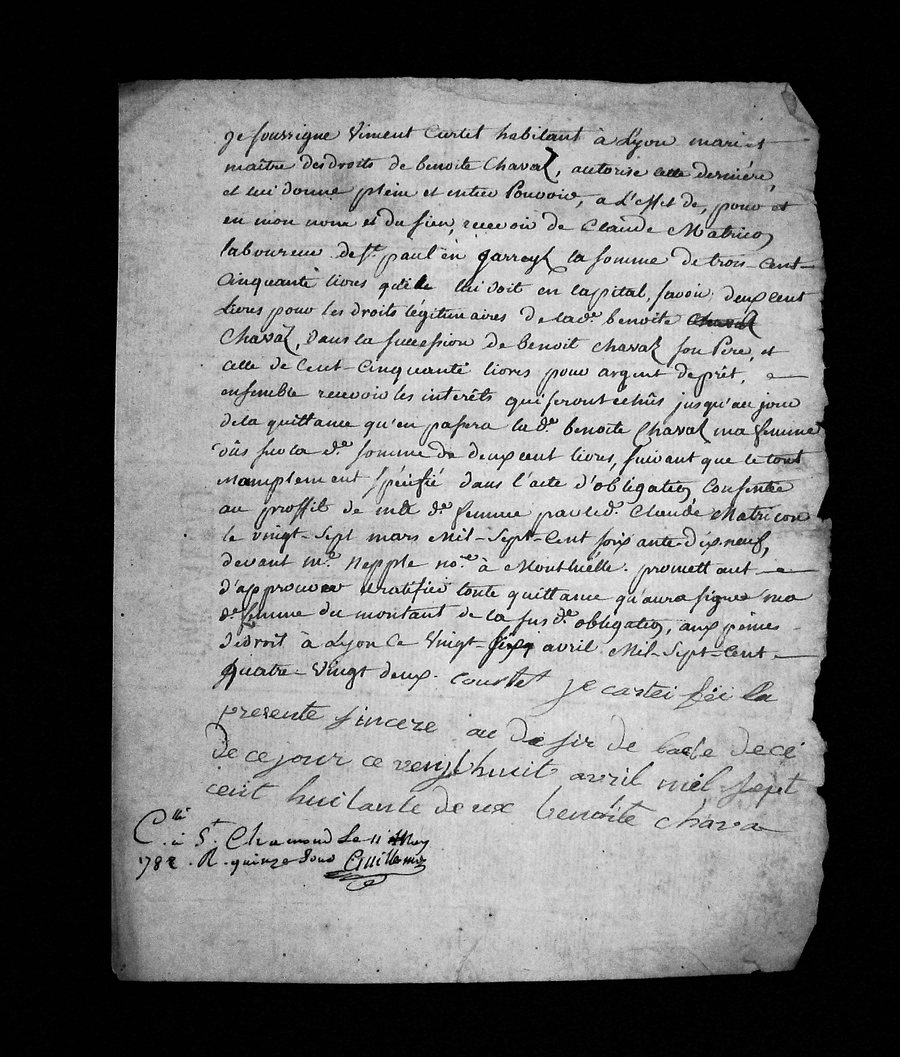 je soussigne Viment Curtet habitant à Lyon mari et
maitre des droits de benoite Chavaz, autorise cette dernière
et lui donne plein et entier Pouvoir, a L'effet de, pour et
en mon nom et du sien, recevoir de Claude Matricon
laboureur de St. paul en Jarreyt la somme de trois-Cent
Cinquante livres qu'il lui doit en Capital, savoir; deux cent
Livres pour les droits légitimaires de lade. benoite Chavaz
Chavaz, dans la succession de benoit Chavaz son Pere, et
celle de Cent-Cinquante livres pour argent de prêt,
ensemble recevoir les interêts qui seront echûs jusqu'au jour
de la quittance qu'en passera lade. benoite Chavaz ma femme
dûs sur la de. somme de deux cent livres, suivant que le tout
et amplement spécifié dans l'acte d'obligation Consentie
au proffit de made. femme par led. Claude Matricon
le vingt-Sept mars Mil-Sept-Cent soixante-dix neuf,
devant me. Nepple nore. à Montluelle. promettant
d'approuver et ratifier toute quittance qu'aura signee ma
de. femme du montant de la susde. obligation, aux peines
de droit à Lyon Ce vingt-six avril Mil-Sept-Cent
Quatre-Vingt deux. Courtet je cartei féi la
presente sincere au desir de lacte decé
de ce jour ce vengt huit avril mél sept
cent huitante deux benoite chava
Clé. à St. Chamond Le 11 May
1782 R. quinze sous Guillemin